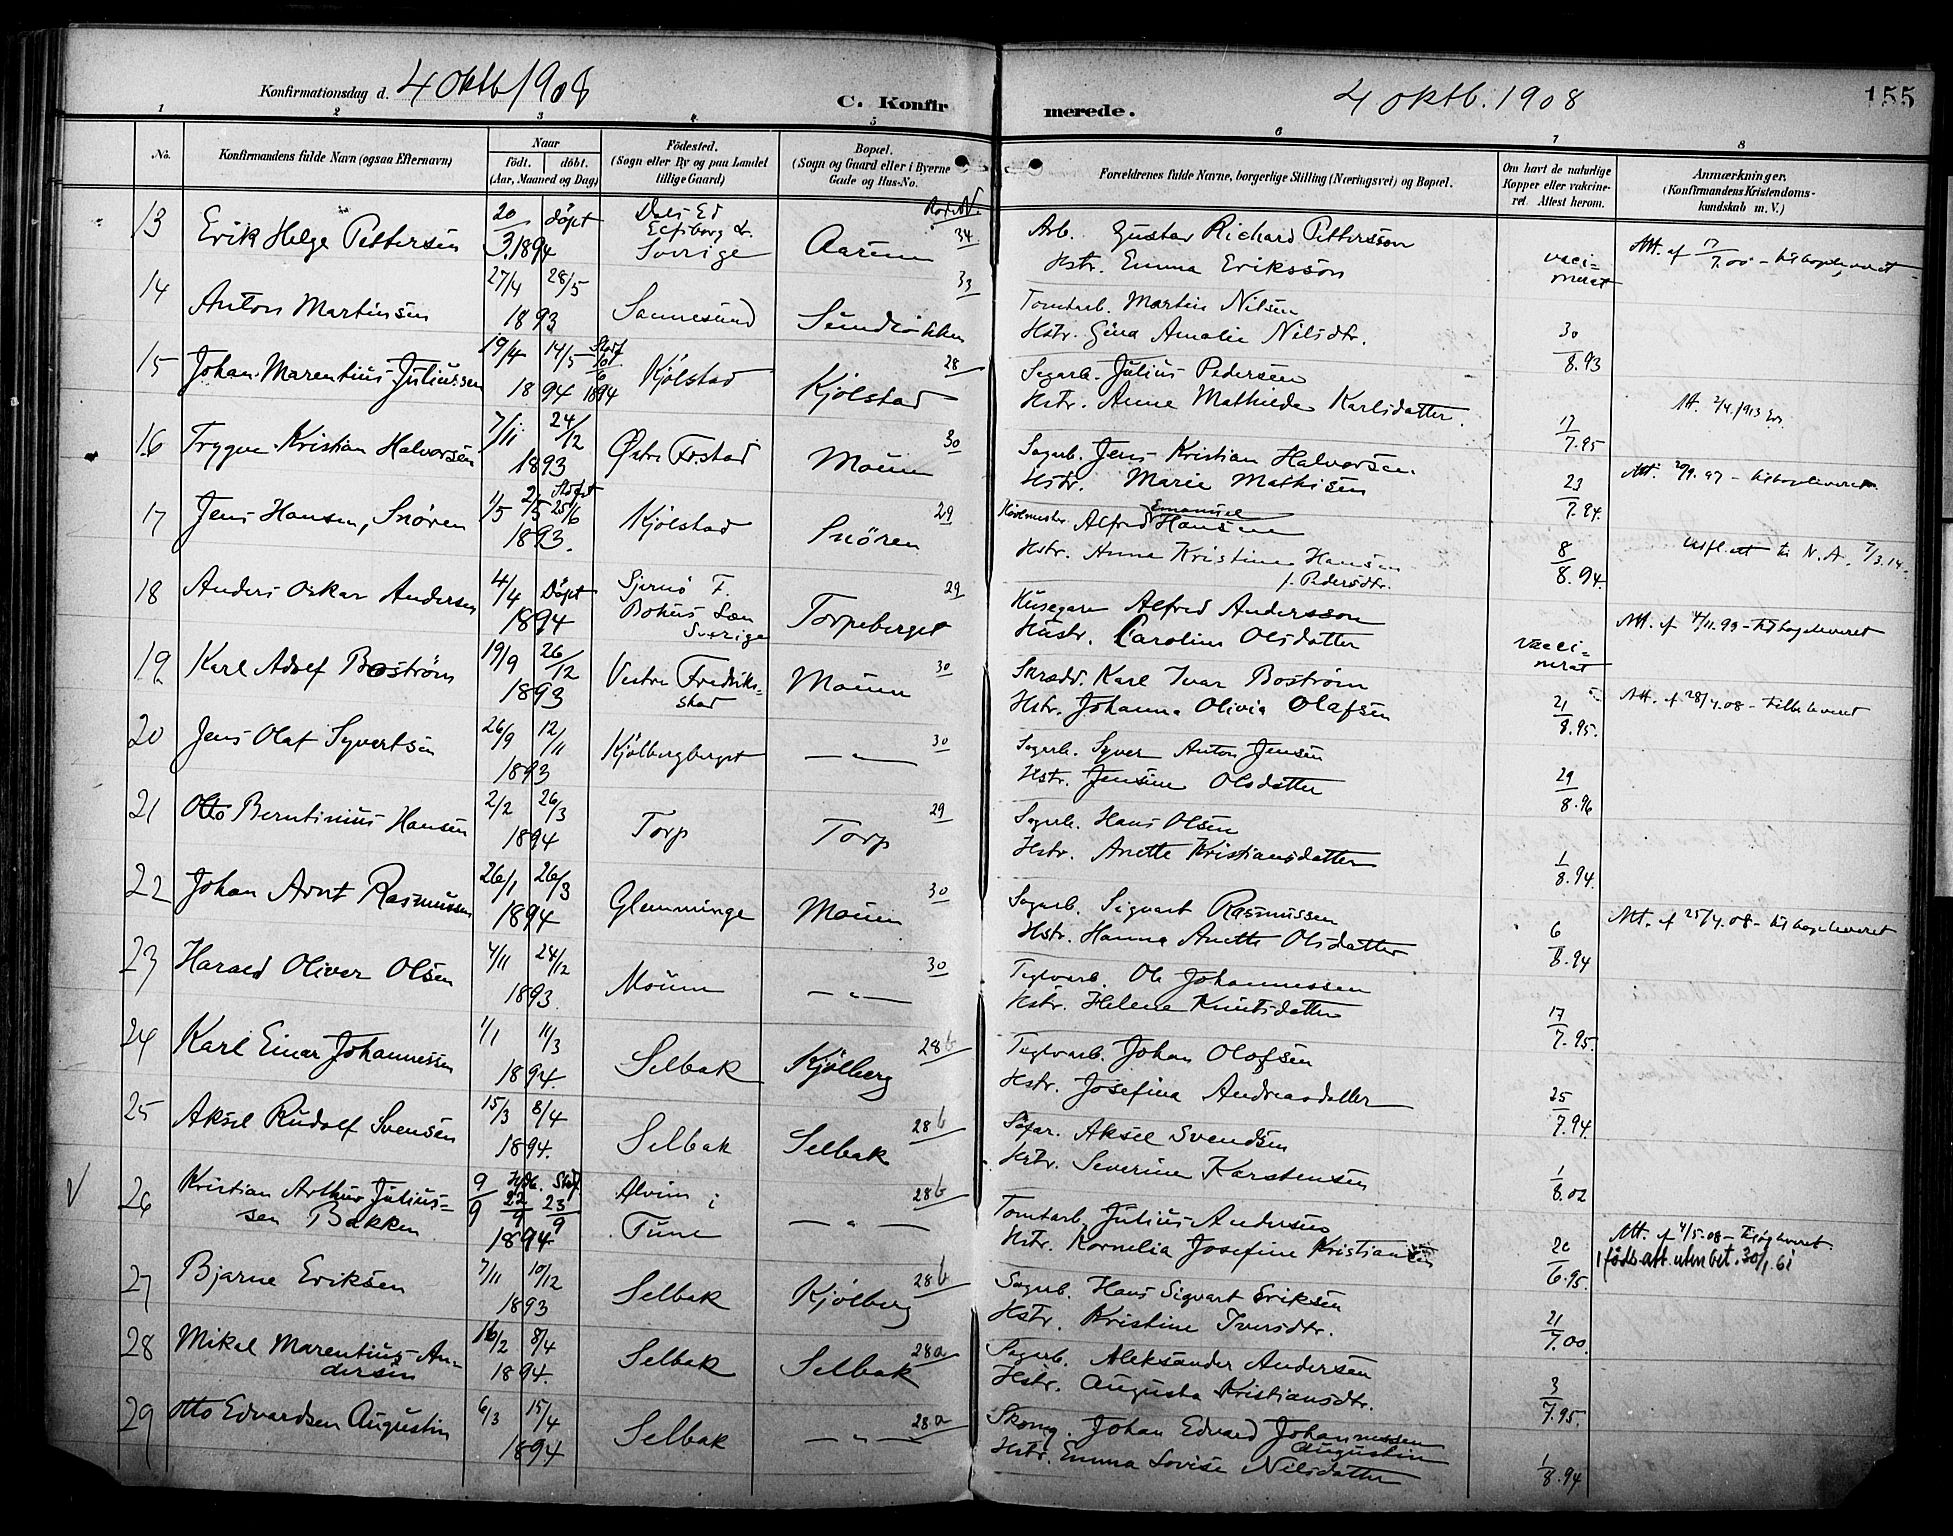 Konfirmationsdag d. 4 oktb 1908
C. Konfir
merede.
4 oktb. 1908
155
1 2 3 4 5 6 7 8
No.
Konfirmandens fulde Navn (ogsaa Efternavn)
Naar
födt. döbt.
(Aar, Maaned og Dag)
Födested.
(Sogn eller By og paa Landet
tillige Gaard)
Bopæl.
(Sogn og Gaard eller i Byerne
Gade og Hus-No.
Forældrenes fulde Navne, borgerlige Stilling (Næringsvei) og Bopæl.
Om havt de naturlige
Kopper eller vaccine-
ret. Attest herom.
Anmærkninger.
(Konfirmandens Kristendoms-
kundskab m. V.)
13 Erik Helge Pettersen 20/3.1894 döpt Dals Ed Elfsborg L. Sverige Aarum 34
Arb. Gustav Richard Pettersson
Hstr. Emma Eriksson
vacci-
nerat
14 Anton Martinsen 27/4 28/5 1893 Sannesund Sundløkken 33
Tomtarb. Martin Nilsen
Hstr. Gina Amalie Nilsdtr.
30/8.93
15 Johan Marentius Juliussen 19/4 14/5 1894 Kjölstad Kjölstad 28
Sagarb. Julius Pedersen
Hstr. Anne Mathilde Karlsdatter.
17/7.95
Att. 2/4.1913
16 Trygve Kristian Halvorsen 7/11 24/12 1893 Østre Fr.stad Moum 30
Sagarb. Jens Kristian Halvorsen.
Hstr. Marie Mathisen
23/7.94.
17 Jens Hansen, Snören 1/5 25/6 1893. Kjölstad Snören 29
Alfred Emanuel Hansen
Hstr. Anne Kristine Hansen
f. Pedersdtr.
8/8.94
til N. A. 7/3.14.
18 Anders Oskar Andersen 4/4 Döpt 1894 Bohus Län Sverige Torpeberget 29
Husegare Alfred Andersson
Hustr. Carolina Olsdatter
vacci-
nerat
19 Karl Adolf Boström 19/9 26/12 1893 Vestre Fredriks-
stad Moum 30
Skrædd. Karl Ivar Boström
Hstr. Johanna Olivia Olafsen
21/8.95.
Att. af 28/4.08 -
20 Jens Olaf Syvertsen 26/9 12/11 1893 Kjölbergberget — „ — 30
Sagarb. Syver Anton Jensen
Hstr. Jensine Olsdatter
29/8.96
21 Otto Berntinius Hansen 2/2 26/3 1894 Torp Torp 29
Sagarb. Hans Olsen
Hstr. Anette Kristiansdatter
1/8.94.
22 Johan Arnt Rasmussen 26/1 26/3 1894 Glemminge Moum 30
Sagarb. Sigvart Rasmussen
Hstr. Hanna Anette Olsdatter
6/8.94
Att. af 25/4.08 - tilbageleveret
23 Harald Oliver Olsen 4/11 24/12 1893. Moum — „ — 30
Teglvarb. Ole Johannessen
Hstr. Helene Knutsdatter
17/7.95.
24 Karl Einar Johannessen 1/1 11/3 1894 Selbak Kjölberg 28b
Teglvarb. Johan Olofsen
Hstr. Josefina Andreasdatter
25/7.94.
25 Aksel Rudolf Svensen 15/3 8/4 1894. Selbak Selbak 28b
Söfar. Aksel Svendsen
Hstr. Severine Karstensen
1/8.02
V 26 Kristian Arthur Julius-
sen Bakken 9/9 Hjdb. 22/9 Stdf. 23/9 1894. Alvim i
Tune — „ — 28b
Tomtarb. Julius Andersen
Hstr. Kornelia Josefine Kristiansen
20/6.95.
Att. af 4/5.08 -
1 føds.att. uten bet. 30/1.61
27 Bjarne Eriksen 7/11 10/12 1893 Selbak Kjölberg 28b
Sagarb. Hans Sigvart Eriksen
Hstr. Kristine Iversdtr.
21/7.00.
28 Mikal Marentius An-
dersen 16/2 8/4 1894. Selbak Selbak 28a
Sagarb. Aleksander Andersen
Hstr. Augusta Kristiansdtr.
3/7.95.
29 Otto Edvardsen Augustin 6/3 15/4 1894 Selbak — „ — 28a
Skomg. Johan Edvard Johannessen
Augustin
Hstr. Emma Lovise Nilsdatter
1/8.94